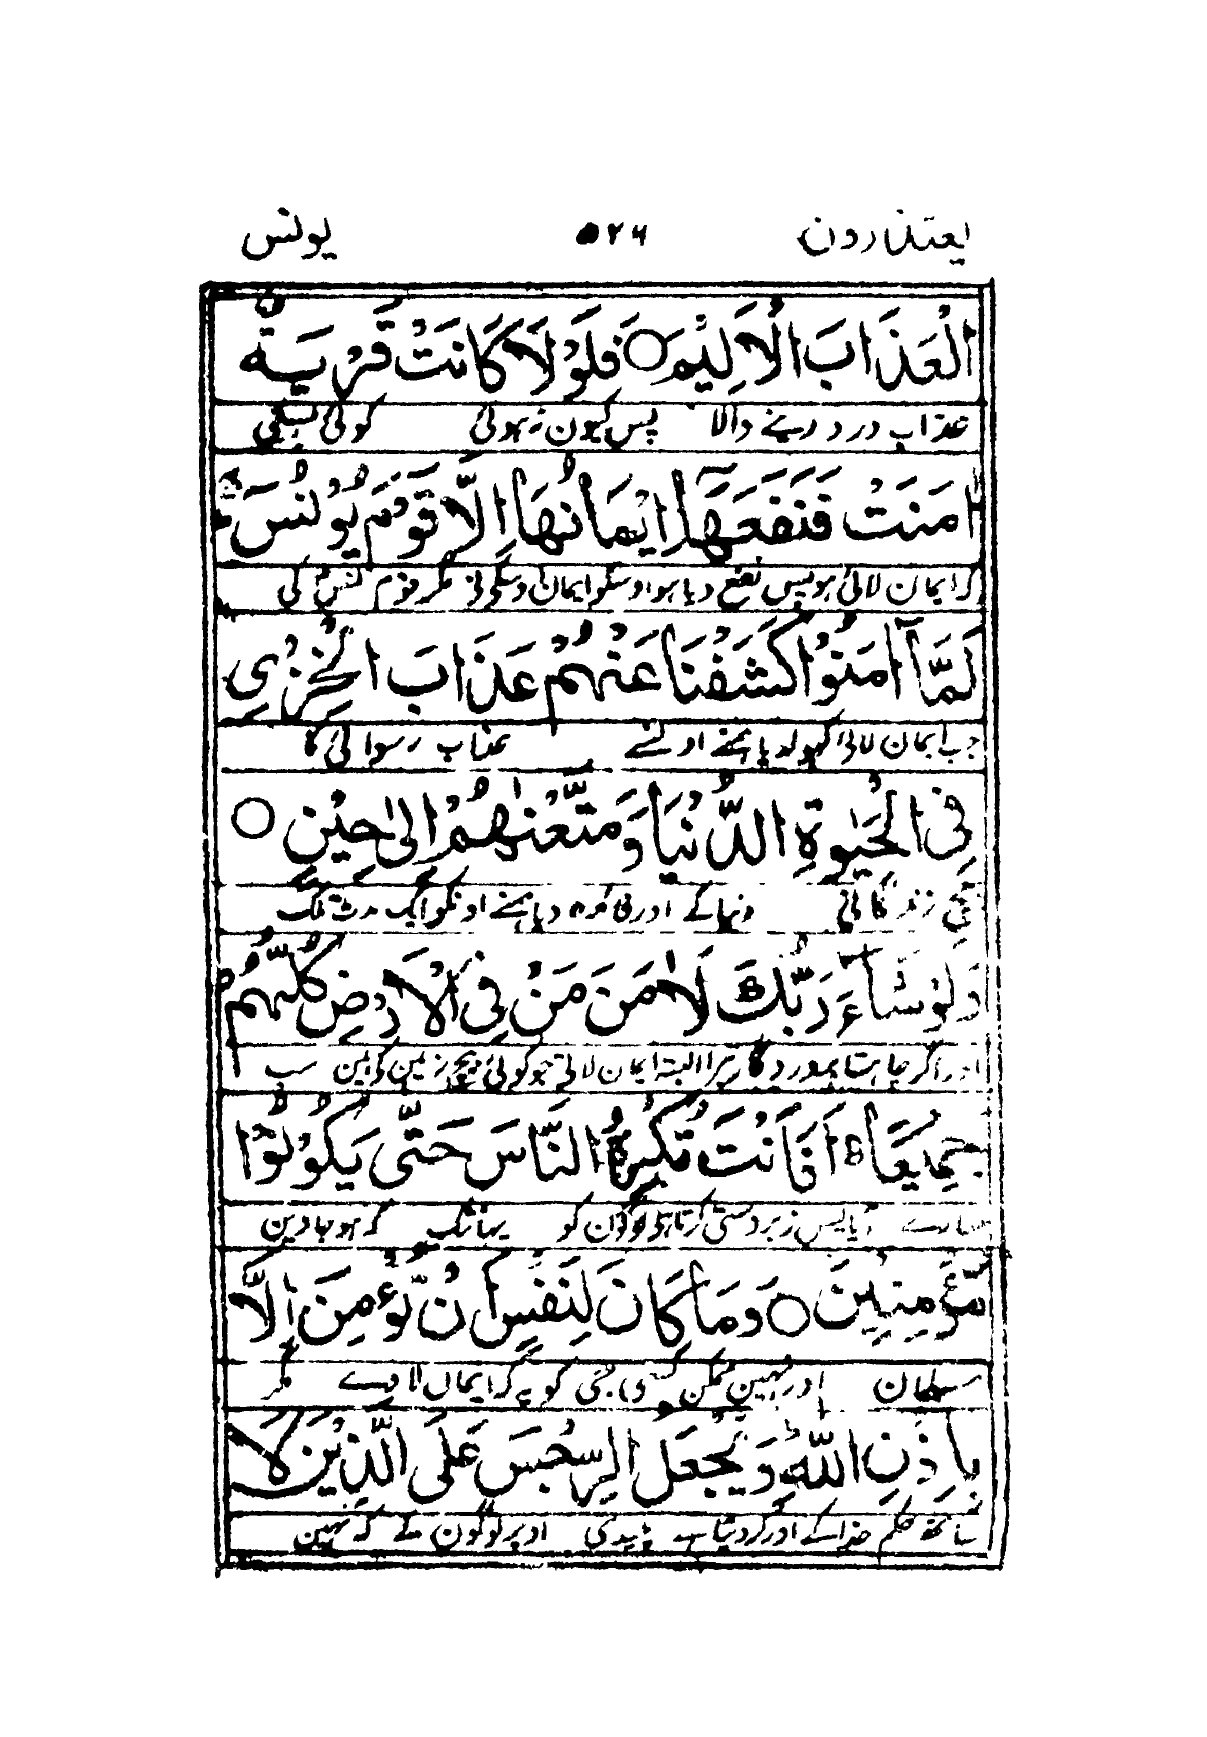 یعتذرون ۵۲۶ یونس
الْعَذَابَ الْاَلِيْمَ ○ فَلَوْلَا كَانَتْ قَرْيَةٌ
عذاب درد دینے والا پس کیون نہ ہوئی کوئی بستی
اٰمَنَتْ فَنَفَعَهَآ اِيْمَانُهَآ اِلَّا قَوْمَ يُوْنُسَ ؕ
کہ ایمان لائی ہو پس نفع دیا ہو اوسکو ایمان اوسکی نے مگر قوم یونس کی
لَمَّآ اٰمَنُوْا كَشَفْنَا عَنْهُمْ عَذَابَ الْخِزْيِ
جب ایمان لائی کھولدیا ہمنے اونسے عذاب رسوائی کا
فِی الْحَيٰوةِ الدُّنْيَا وَمَتَّعْنٰهُمْ اِلٰى حِيْنٍ ○
بیچ زندگانی دنیا کے اور فائدہ دیا ہمنے اونکو ایک مدت تک
وَلَوْ شَآءَ رَبُّكَ لَاٰمَنَ مَنْ فِی الْاَرْضِ كُلُّهُمْ
اور اگر چاہتا پروردگار تیرا البتہ ایمان لاتے جو کوئی بیچ زمین کی ہین سب
جَمِيْعًا ؕ اَفَاَنْتَ تُكْرِهُ النَّاسَ حَتّٰى يَكُوْنُوْا
سارے آیا پس زبردستی کرتا ہی لوگون کو یہانتک کہ ہو جاوین
مُؤْمِنِيْنَ ○ وَمَا كَانَ لِنَفْسٍ اَنْ تُؤْمِنَ اِلَّا
مسلمان اور نہین ممکن کسی جی کو یہ کہ ایمان لاوے مگر
بِاِذْنِ اللّٰهِ ؕ وَيَجْعَلُ الرِّجْسَ عَلَى الَّذِيْنَ لَا
ساتھ حکم خدا کے اور کردیتا ہے پلیدی اوپر لوگون کے کہ نہین